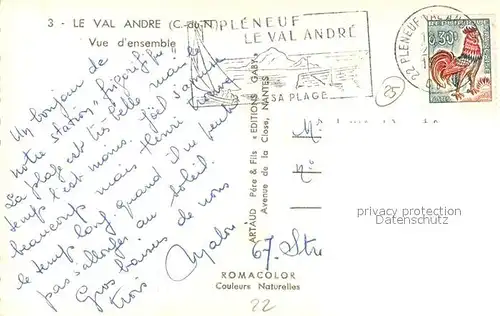 3 - LE VAL ANDRE (C.-du-N.)
Vue d'ensemble
PLÉNEUF
LE VAL ANDRÉ
SA PLAGE
22 PLENEUF-VAL-AN
0,30
Un bonjour de
notre station "frigorifique"
La plage est très belle mais le
temps l'est moins. Joël s'amuse
beaucoup mais Henri trouve
le temps long quand il ne peut
pas s'allonger au soleil.
Gros baisers de nous
trois
25
M
67. Str
"EDITIONS GABY"
ARTAUD Père & Fils
Avenue de la Close, NANTES
ROMACOLOR
Couleurs Naturelles
22
privacy protection
Datenschutz